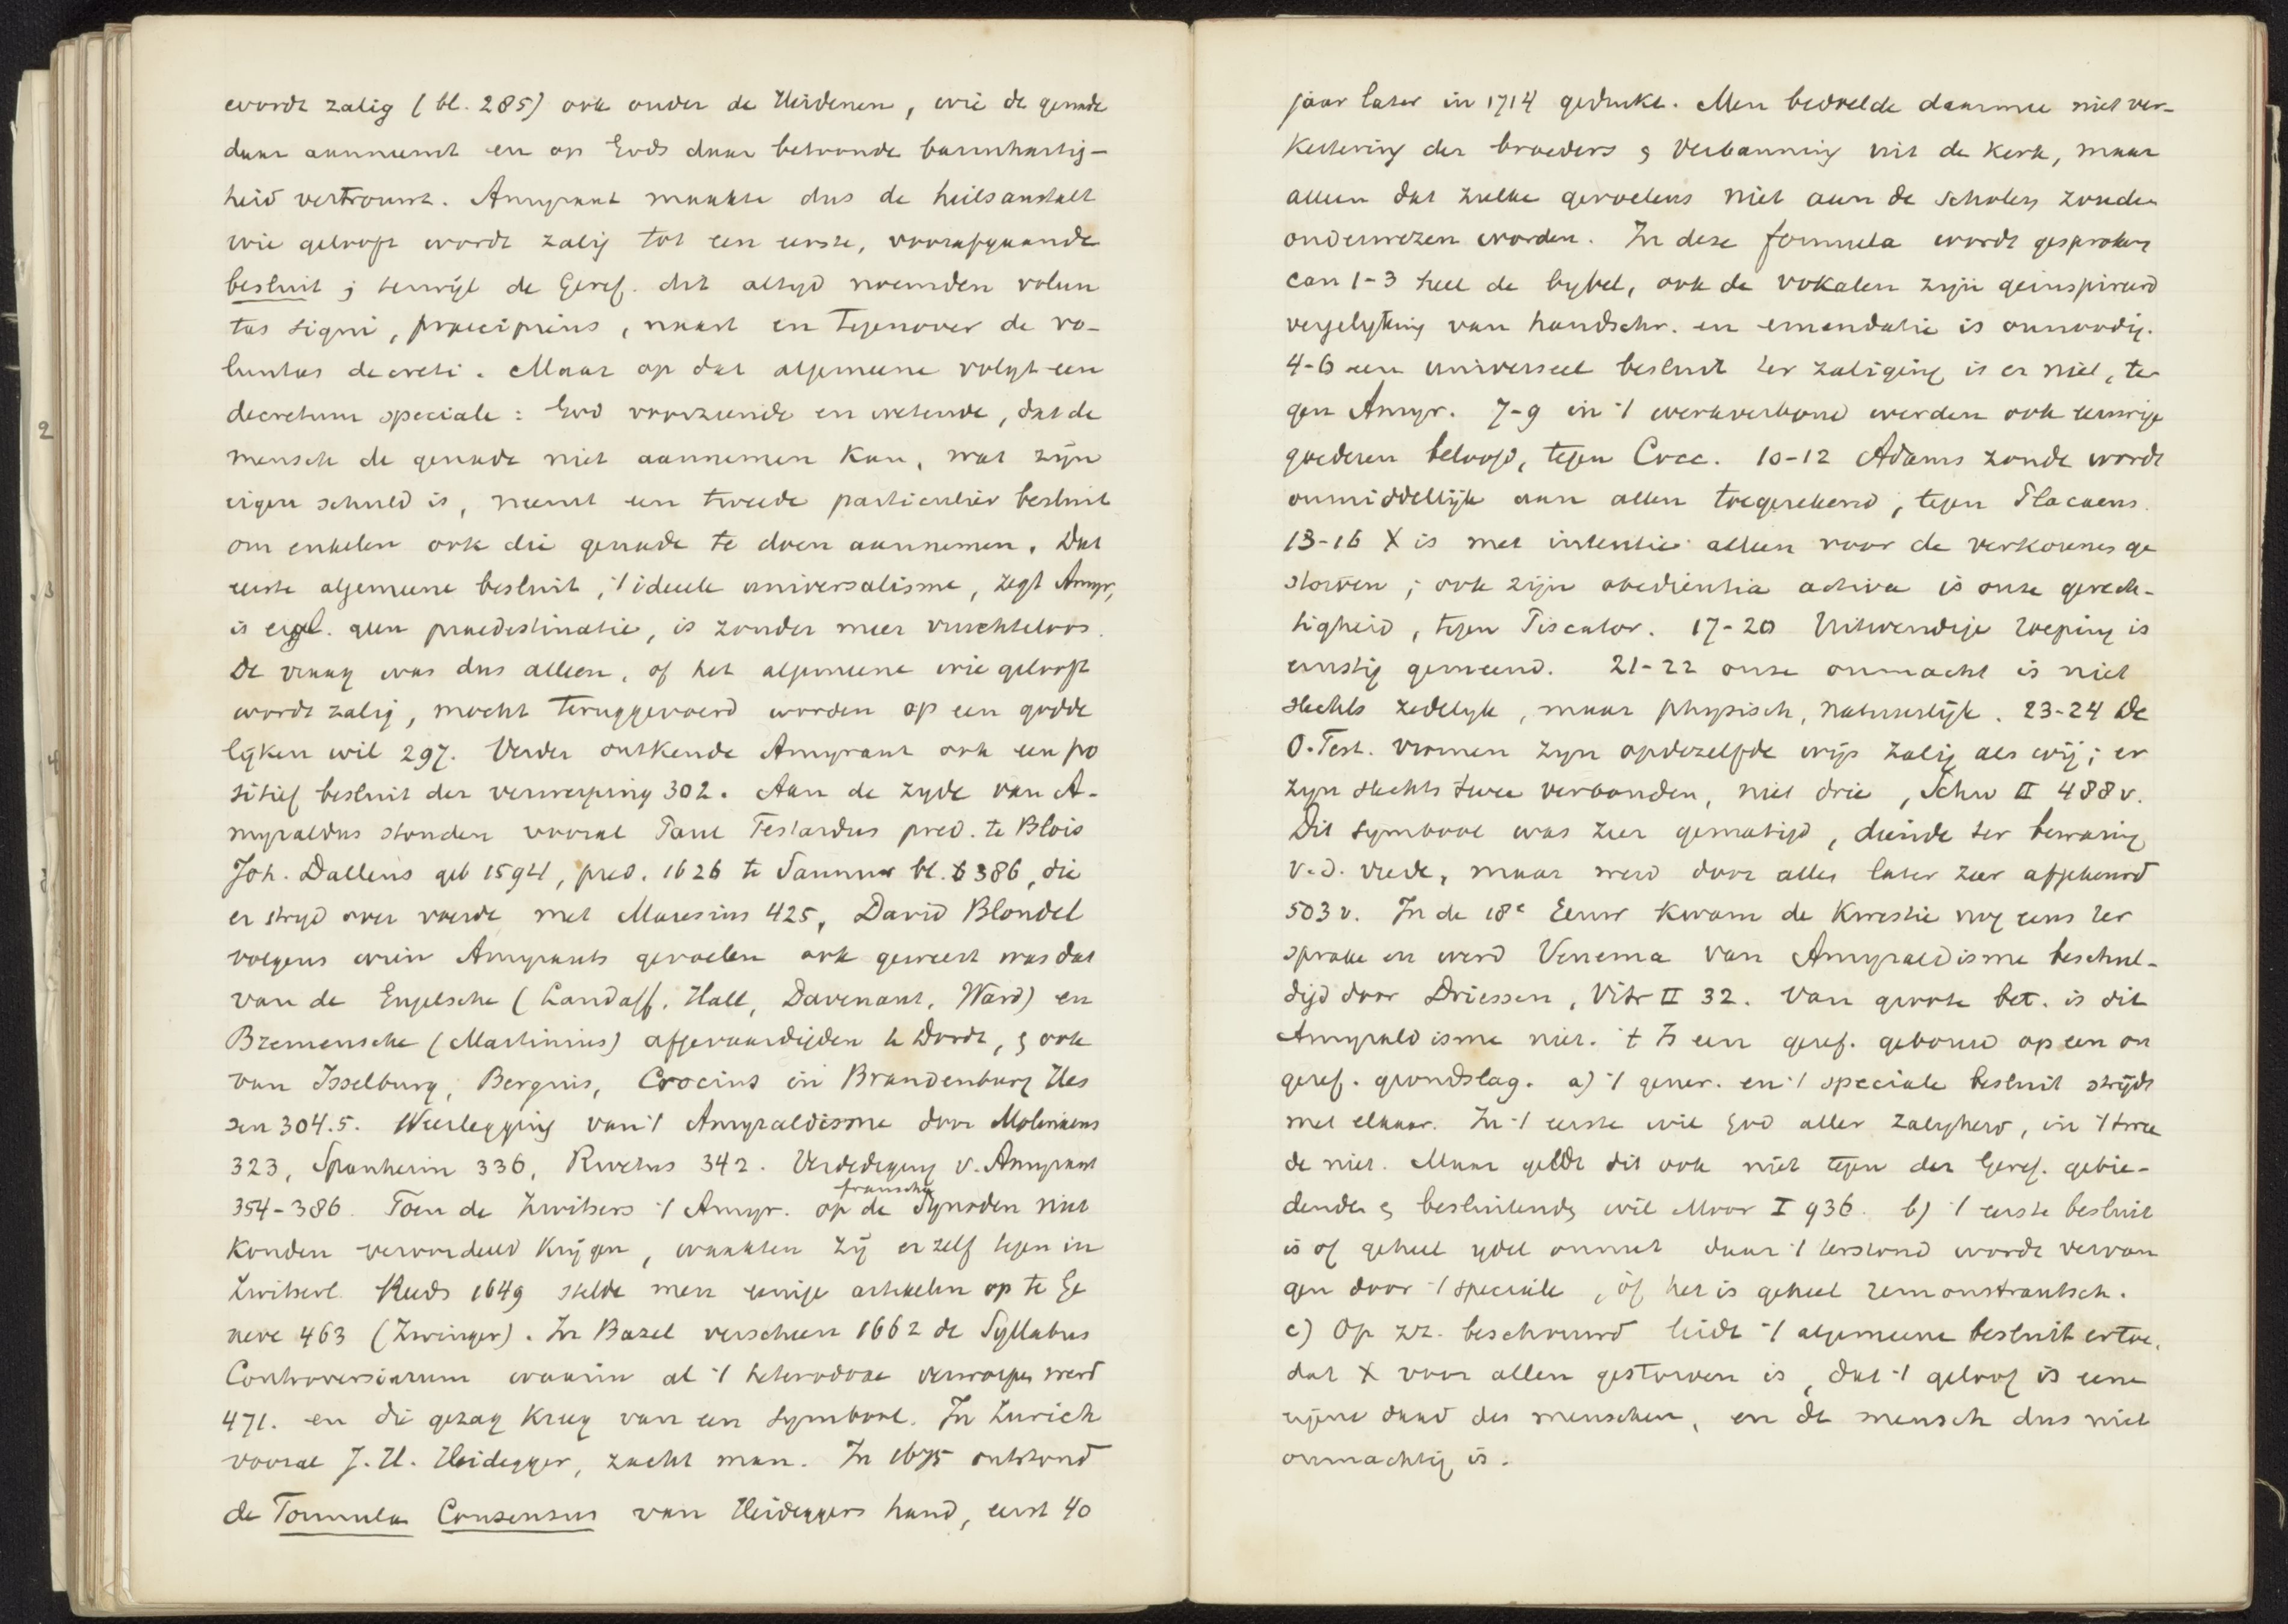 wordt zalig (bl. 285) ook onder de Heidenen, wie de genade
daar aanneemt en op Gods daar betoonde barmhartig-
heid vertrouwt. Amyraut maakte dus de heilsanstalt
wie gelooft wordt zalig tot een eerste, voorafgaande
besluit; terwijl de Geref. dit altyd noemden volun
tas signi, praecipiens, naast en tegenover de vo-
luntas decreti. Maar op dat algemeene volgt een
decretum speciale: God voorziende en wetende, dat de
mensch de genade niet aannemen kan, wat zijn
eigen schuld is, neemt een tweede particulier besluit
om enkelen ook die genade te doen aannemen. Dat
eerste algemeene besluit, 't ideele universalisme, zegt Amyr,
is eigl. geen praedestinatie, is zonder meer vruchteloos.
De vraag was dus alleen, of het algemeene wie gelooft
wordt zalig, mocht teruggevoerd worden op een godde
lijken wil 297. Verder ontkende Amyraut ook een po
sitief besluit der verwerping 302. Aan de zyde van A-
myraldus stonden vooral Paul Testardus pred. te Blois
Joh. Dallens geb 1594, pred. 1626 te Saumur bl. 386, die
er stryd over voerde met Maresius 425, David Blondel
volgens wien Amyrauts gevoelen ook geweest was dat
van de Engelsche (Landaff, Hall, Davenant, Ward) en
Bremensche (Martinius) afgevaardigden te Dordt, & ook
van Isselburg, Bergius, Crocius in Brandenburg Hes
sen 304.5. Weerlegging van 't Amyraldisme door Molinaeus
323, Spanheim 336, Rivetus 342. Verdediging v. Amyraut
354-386. Toen de Zwitsers 't Amyr. op de fransche Synoden niet
konden veroordeeld krijgen, waakten zij er zelf tegen in
Zwitserl. Reeds 1649 stelde men eenige artikelen op te Ge
neve 463 (Zwinger). In Bazel verscheen 1662 de Syllabus
Controversiarum waarin al 't heterodoxe verworpen werd
471. en die gezag kreeg van een symbool. In Zurich
vooral J. H. Heidegger, zacht man. In 1675 ontstond
de Formula Consensus van Heideggers hand, eerst 40
jaar later in 1714 gedrukt. Men bedoelde daarmee niet ver-
kettering der broeders & verbanning uit de kerk, maar
alleen dat zulke gevoelens niet aan de scholen zouden
onderwezen worden. In deze formula wordt gesproken
can 1-3 heel de bybel, ook de vokalen zijn geinspireerd
vergelyking van handschr. en emendatie is onnoodig.
4-6 een universeel besluit ter zaliging is er niet, te-
gen Amyr. 7-9 in 't werkverbond werden ook eeuwige
goederen beloofd, tegen Cocc. 10-12 Adams zonde wordt
onmiddellijk aan allen toegerekend, tegen Placaeus.
13-16 X is met intentie alleen voor de verkorenen ge
storven; ook zijn obedientia activa is onze gerech-
tigheid, tegen Piscator. 17-20 Uitwendige roeping is
ernstig gemeend. 21-22 onze onmacht is niet
slechts zedelyk, maar physisch, natuurlijk. 23-24 De
O. Test. vromen zyn opdezelfde wijs zalig als wij; er
zyn slechts twee verbonden, niet drie, Schw II 488 v.
Dit symbool was zeer gematigd, diende ter bewaring
v.d. vrede, maar werd door alles later zeer afgekeurd
503 v. In de 18e Eeuw kwam de kwestie nog eens ter
sprake en werd Venema van Amyraldisme beschul-
digd door Driessen, Vitr II 32. Van groote bet. is dit
Amyraldisme niet. 't Is een geref. gebouw op een on
geref. grondslag. a) 't gener. en 't speciale besluit strijdt
met elkaar. In 't eerste wil God aller zaligheid, in 't twee
de niet. Maar geldt dit ook niet tegen der Geref. gebie-
dende & besluitende wil Moor I 936. b) 't eerste besluit
is of geheel ydel onnut daar 't terstond wordt vervan
gen door 't speciale, of het is geheel remonstrantsch.
c) Op zz. beschouwd leidt 't algemeene besluit ertoe,
dat X voor allen gestorven is, dat 't geloof is eene
eigene daad des menschen, en de mensch dus niet
onmachtig is.